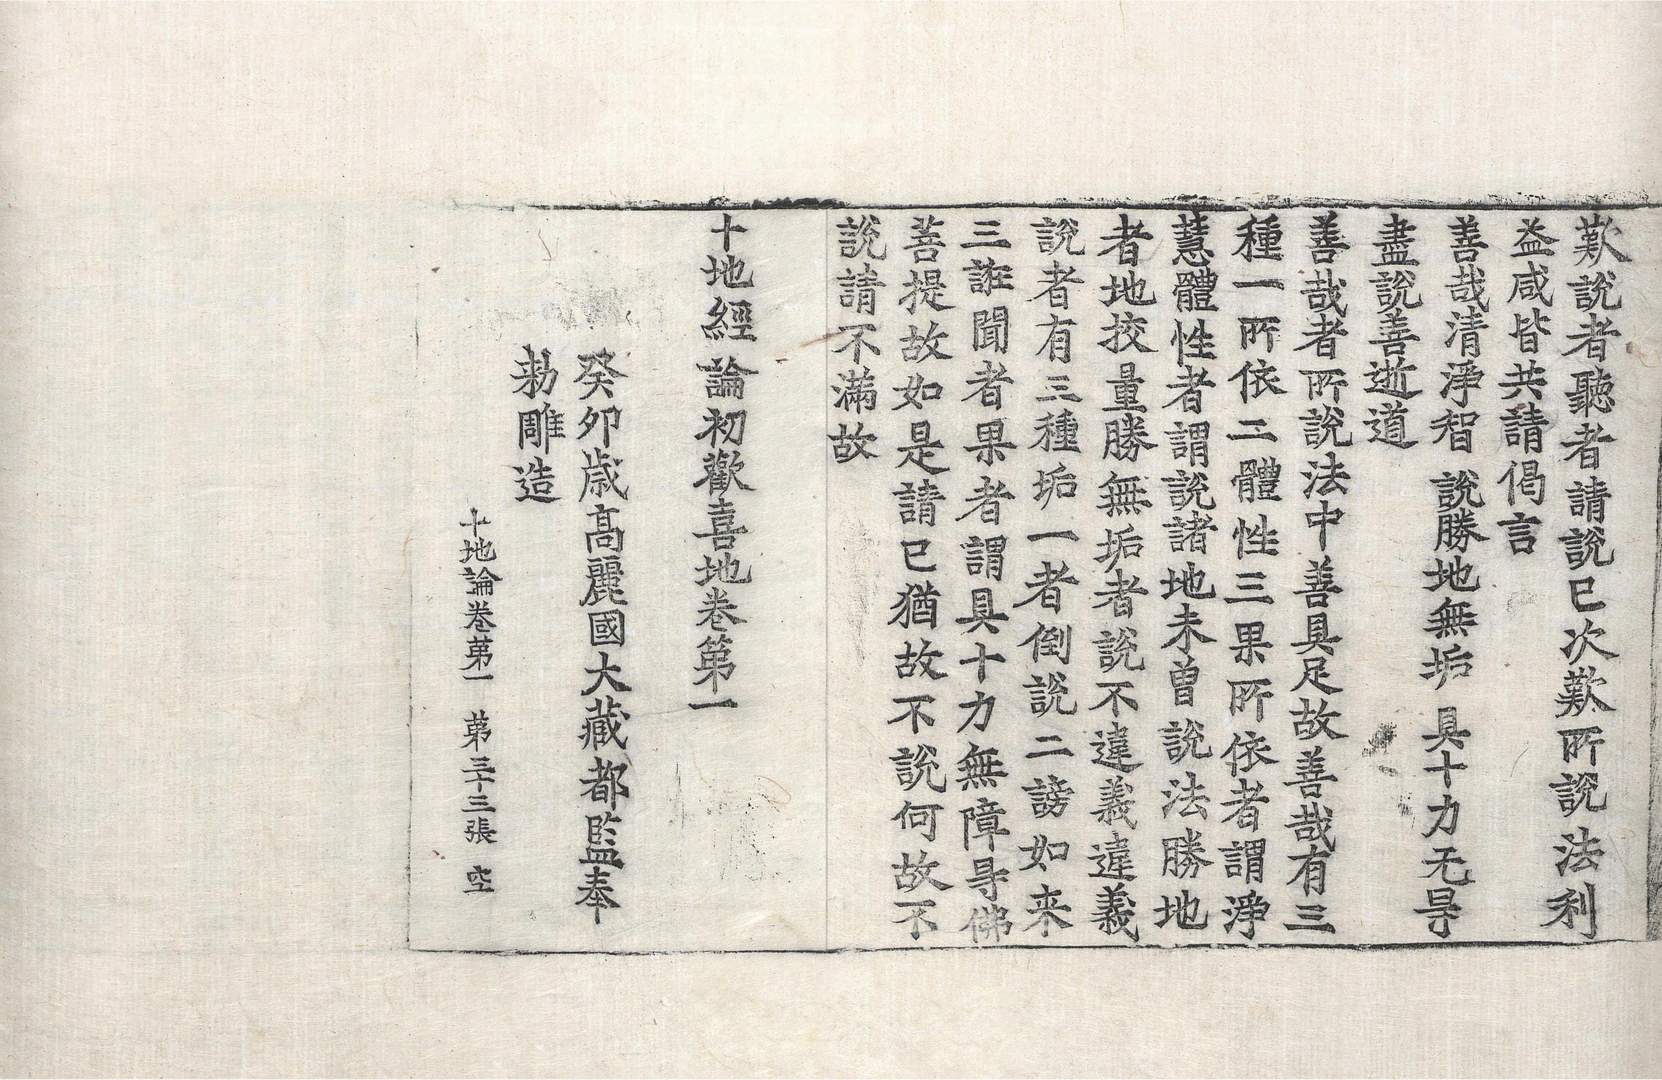 歎說者聽者請說已次歎所說法利
益咸皆共請偈言
善哉清淨智 說勝地無垢 具十力无㝵
盡說善逝道
善哉者所說法中善具足故善哉有三
種一所依二體性三果所依者謂淨
慧體性者謂說諸地未曾說法勝地
者地挍量勝無垢者說不違義違義
說者有三種垢一者倒說二謗如来
三誑聞者果者謂具十力無障㝵佛
菩提故如是請已猶故不說何故不
說請不滿故
十地經論初歡喜地卷第一
癸卯歳高麗國大藏都監奉
勅雕造
十地論卷第一 第三十三張 空